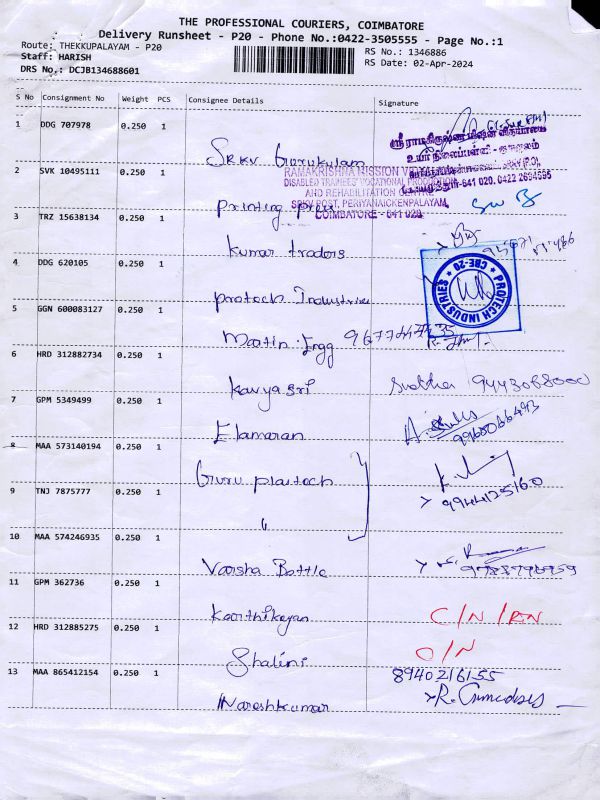 THE PROFESSIONAL COURIERS, COIMBATORE
Delivery Runsheet - P20 - Phone No.:0422-3505555 - Page No.:1
Route: THEKKUPALAYAM - P20
RS No.: 1346886
Staff: HARISH
RS Date: 02-Apr-2024
DRS No.: DCJB134688601
S No Consignment No Weight PCS Consignee Details Signature
1 DDG 707978 0.250 1 SRKV Gurukulam
ஸ்ரீ ராமகிருஷ்ண மிஷன் வித்யாலய
உயர் நிலைப்பள்ளி - குருகுலம்
641 020. 0422 2694595
RAMAKRISHNA MISSION
DISABLED TRAINEES' VOCATIONAL PRODUCTION
AND REHABILITATION CENTRE
SRKV POST, PERIYANAICKENPALAYAM,
COIMBATORE - 641 020
2 SVK 10495111 0.250 1 Printing press
3 TRZ 15638134 0.250 1 Kumar traders
4 DDG 620105 0.250 1 protech Industries
CBE-20 * PROTECH INDUSTRIES *
5 GGN 600083127 0.250 1 Martin Engg 9677247435
6 HRD 312882734 0.250 1 Kavyasri 9443068000
7 GPM 5349499 0.250 1 Elamaran 9968066493
8 MAA 573140194 0.250 1 Guru plastech
9 TNJ 7875777 0.250 1 " 9944125160
10 MAA 574246935 0.250 1 Varsha Bottle
11 GPM 362736 0.250 1 Karthikeyan C/N/RN
12 HRD 312885275 0.250 1 Shalini O/N
13 MAA 865412154 0.250 1 Nareshkumar 8940216155